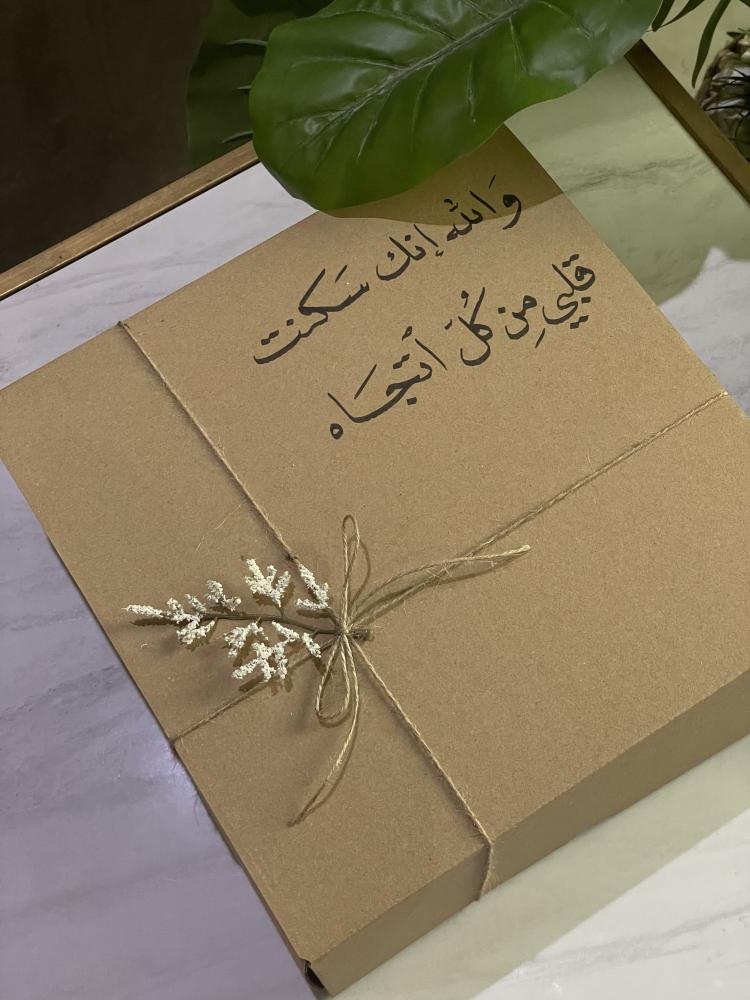 وَالله إنك سَكنت
قلبي مِن كُلَ أتجَاه